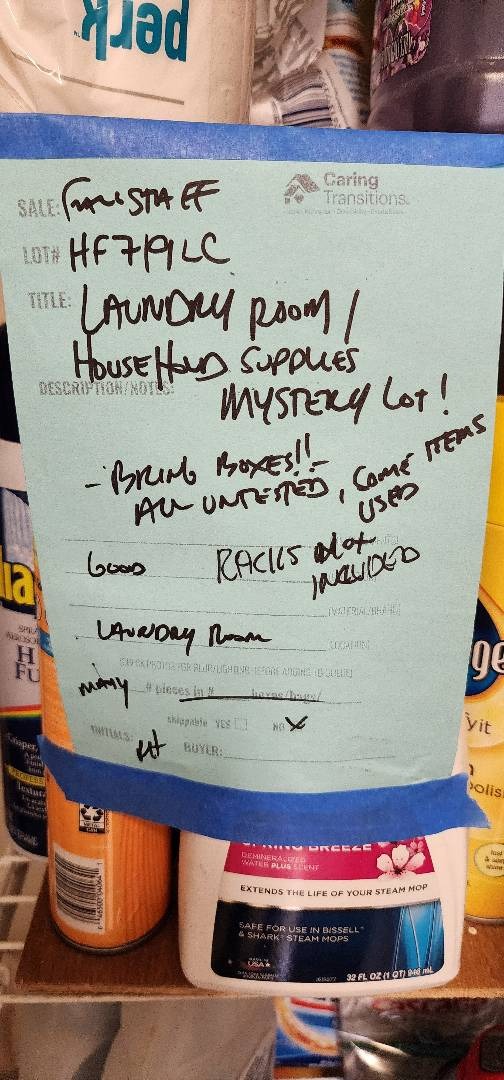 perk
Caring
Transitions.
SALE:
LOT# HF719LC
TITLE: LAUNDRY ROOM /
HOUSEHOLD SUPPLIES
DESCRIPTION/NOTES:
MYSTERY LOT!
- BRING BOXES!! -
ALL UNTESTED, SOME ITEMS
USED
GOOD RACKS NOT
INCLUDED
(MATERIAL/BRAND)
LAUNDRY ROOM (LOCATION)
MANY # pieces in # boxes/bags/
shippable YES NO X
INITIALS: BUYER:
SPRING BREEZE
DEMINERALIZED
WATER PLUS SCENT
EXTENDS THE LIFE OF YOUR STEAM MOP
SAFE FOR USE IN BISSELL
& SHARK STEAM MOPS
MADE IN
USA
32 FL OZ (1 QT) 946 mL